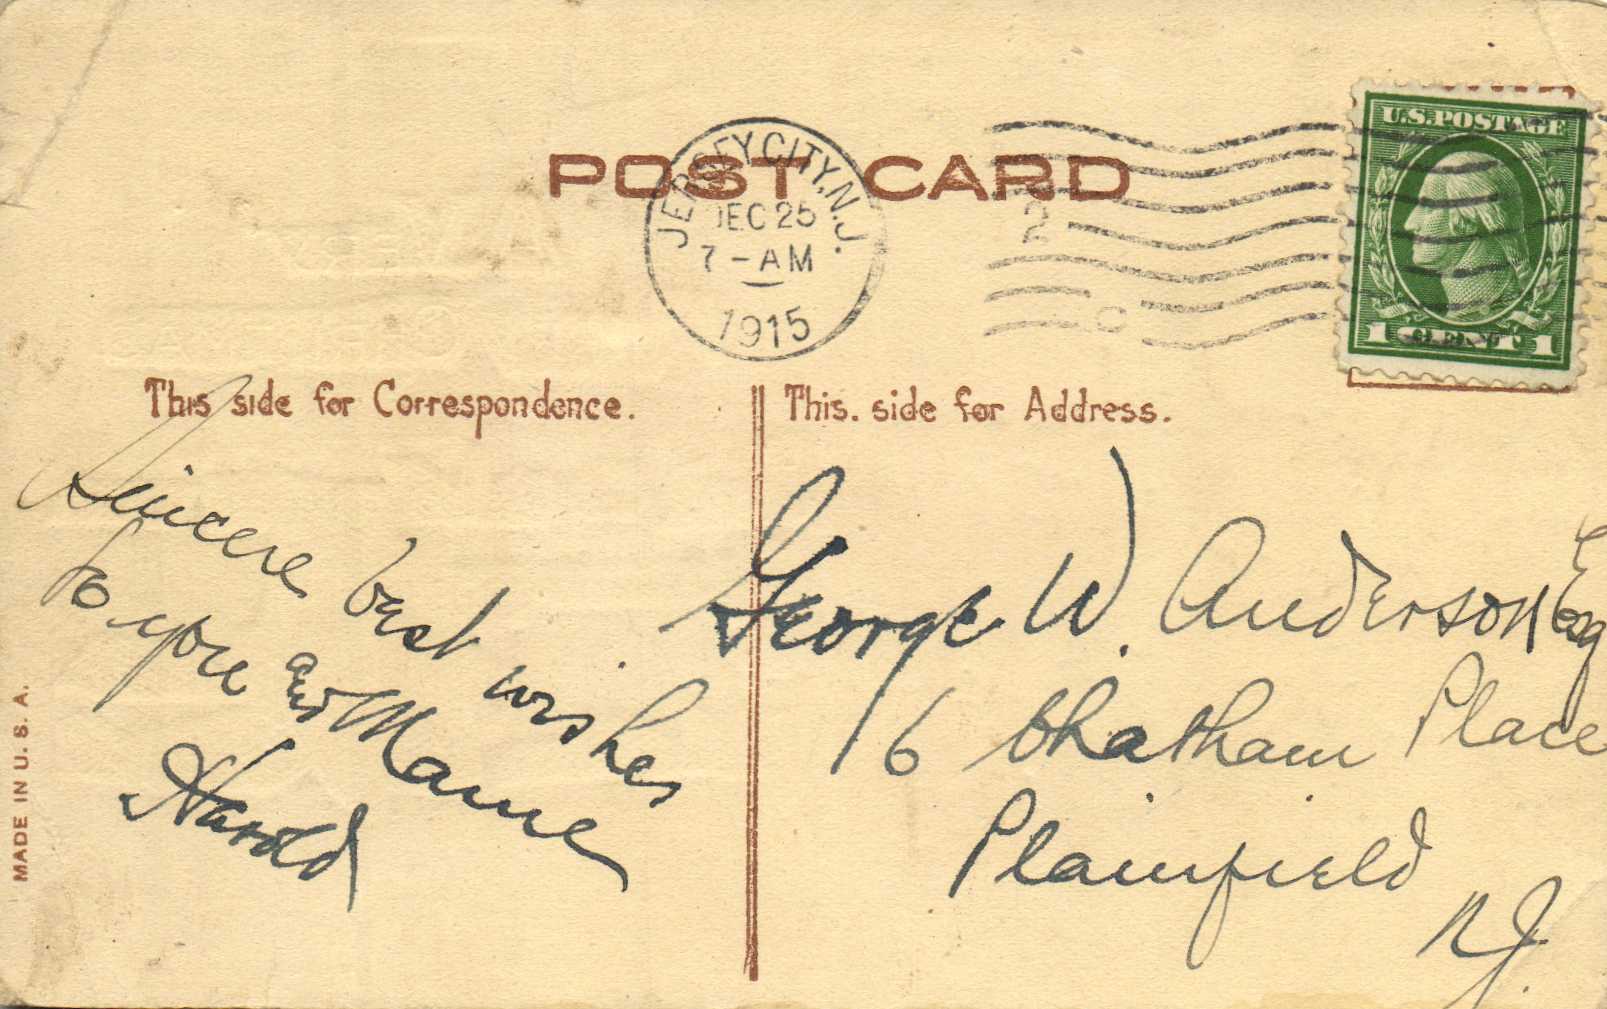 POST CARD
JERSEY CITY, N.J.
DEC 25
7-AM
1915
2
U.S. POSTAGE
1 CENT 1
This side for Correspondence.
This. side for Address.
Sincere best wishes
to you and Mame
Harold
George W. Anderson Esq
16 Chatham Place
Plainfield
N.J.
MADE IN U.S.A.